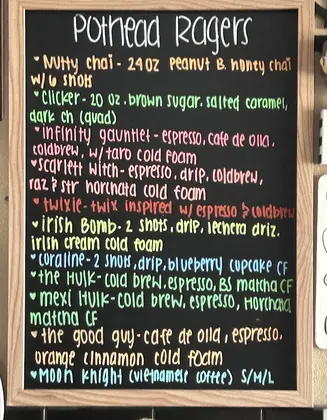 Pothead Ragers
♥ Nutty chai - 24oz peanut B. honey chai
w/ 6 shots
♥ Clicker - 20 oz. brown sugar. salted caramel,
dark ch (quad)
♥ infinity gauntlet - espresso, cafe de olla,
coldbrew, w/ taro cold foam
♥ scarlett witch - espresso, drip, coldbrew,
raz & str horchata cold foam
♥ twixie - twix inspired w/ espresso & coldbrew
♥ irish Bomb - 2 shots, drip, lechera driz.
irish cream cold foam
♥ coraline - 2 shots, drip, blueberry cupcake CF
♥ the Hulk - cold brew, espresso, BS matcha CF
♥ mexi Hulk - cold brew, espresso, Horchata
matcha CF
♥ the good guy - cafe de olla, espresso,
orange cinnamon cold foam
♥ Moon Knight (vietnamese coffee) S/M/L